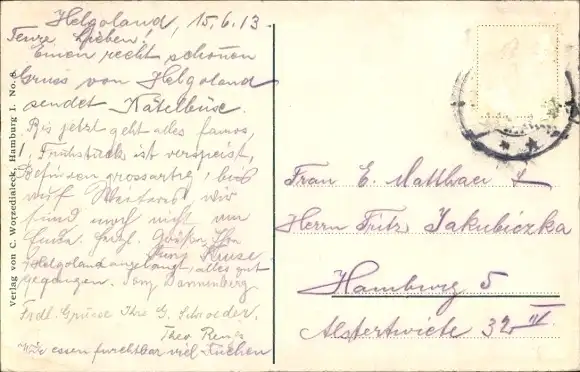 Helgoland, 15.6.13.
Lieben!
Einen recht schönen
Gruss von Helgoland
sendet
Bis jetzt geht alles famos,
1. Frühstück ist verspeist,
Befinden grossartig, bis
auf Weiteres, wir
sind noch nicht am
Ende. Herzl. Grüße, Ihre
Kruse
Helgoland angelangt, alles gut
gegangen. Tony Dannenberg
Frdl. Grüsse Ihre G. Schroeder.
Theo
Wir essen furchtbar viel Kuchen
Verlag von C. Worzedialeck, Hamburg I. No. 8.
Frau E. Matthaei &
Herrn Fritz Jakubiczka
Hamburg 5
Alstertwiete 32 IV